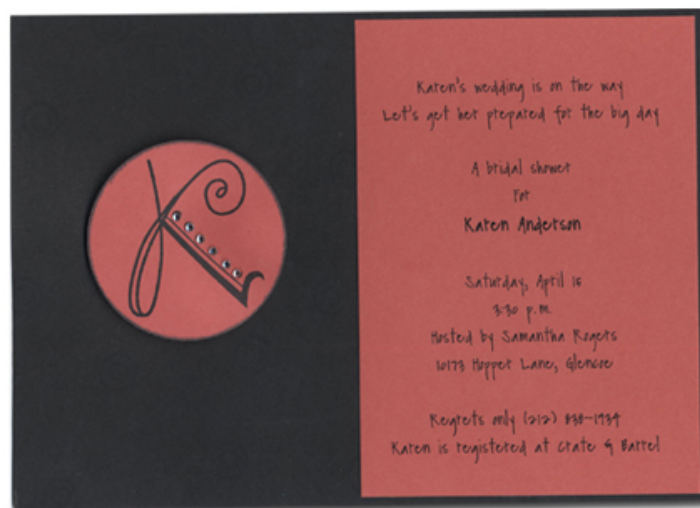 K
Karen's wedding is on the way
Let's get her prepared for the big day
A bridal shower
For
Karen Anderson
Saturday, April 15
3:30 p.m.
Hosted by Samantha Rogers
10173 Hopper Lane, Glencoe
Regrets only (212) 838-1934
Karen is registered at Crate & Barrel